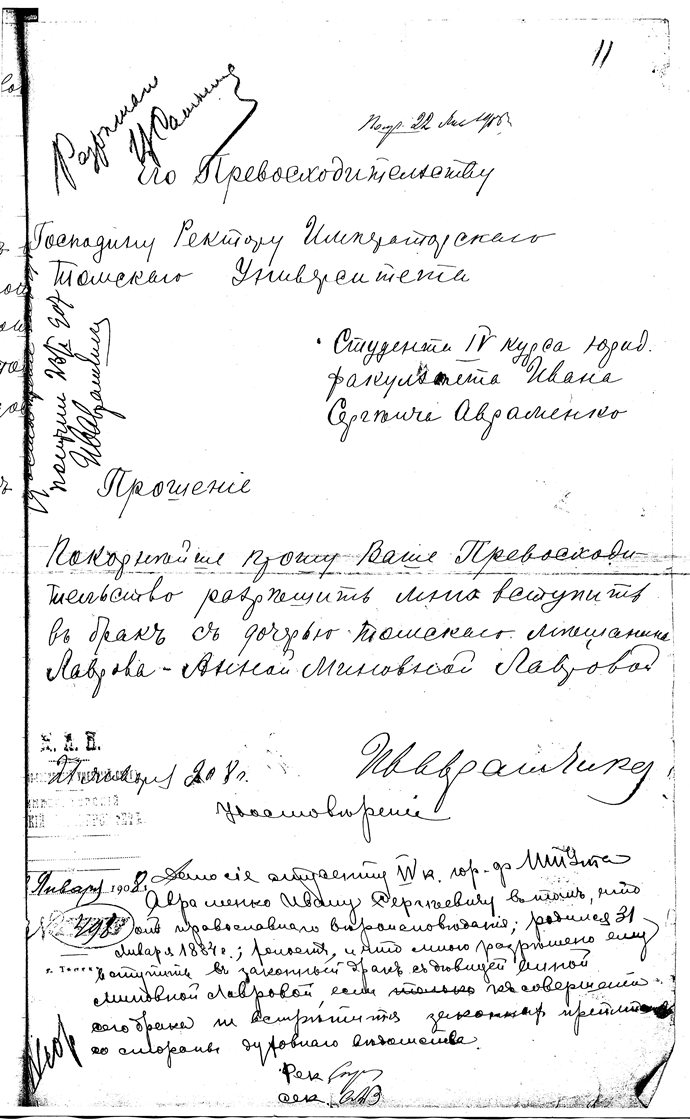 11
Разрешаю
Пол. 22 Янв 1908
Его Превосходительству
Господину Ректору Императорскаго
Томскаго Университета
Студента IV курса юрид.
факультета Ивана
Сергѣевича Авраменко
Удостовѣреніе
получилъ
ИвАвраменко
Прошеніе
Покорнѣйше прошу Ваше Превосходи-
тельство разрѣшить мнѣ вступить
въ бракъ съ дочерью томскаго мѣщанина
Лаврова - Анной Миновной Лавровой
И. Н. П.
21 января 908 г.
ИвАвраменко
Удостовѣреніе
Января 190
298
г. Томскъ
Дано сіе студенту IV к. юр. ф. ИТУ-та
Авраменко Ивану Сергѣевичу въ томъ, что
онъ православнаго вѣроисповѣданія; родился 31
января 1884 г.; холостъ, и что мною разрѣшено ему
вступить въ законный бракъ съ дѣвицей Анной
Миновной Лавровой, если только къ совершенію
сего брака не встрѣтится законныхъ препятствій
со стороны духовнаго вѣдомства.
Рек
Сек.